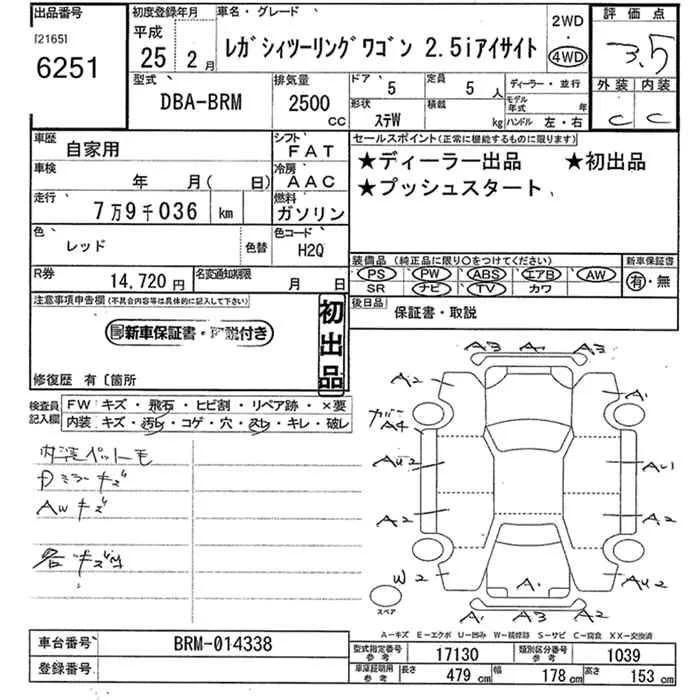 出品番号 初度登録年月 車名・グレード 2WD・4WD 評価点
[2165] 6251 平成 25年 2月 レガシィツーリングワゴン 2.5iアイサイト 3.5
型式 DBA-BRM 排気量 2500 CC ドア 5 定員 5 人 ディーラー・並行 外装 C 内装 C
形状 ステW 積載 kg モデル年式 年 ハンドル 左・右
車歴 自家用 シフト FAT セールスポイント(正常に機能するものに限ります)
車検 年 月( 日) 冷房 AAC ★ディーラー出品 ★初出品
走行 7万9千036 km 燃料 ガソリン ★プッシュスタート
色 レッド 色替 色コード H2Q
装備品 (純正品に限り○をつけてください) 新車保証書
PS PW ABS エアB AW 有・無
SR ナビ TV カワ
R券 14,720円 名変通知期限 月 日
後日品 保証書・取説
注意事項申告欄 (不具合内容等は具体的に記入して下さい)
新車保証書・取説付き
初出品
修復歴 有〔箇所
検査員記入欄 FW キズ・飛石・ヒビ割・リペア跡・×要
内装 キズ・汚レ・コゲ・穴・スレ・キレ・破レ
内装ペット毛
Dミラーキズ
AWキズ
各キズ凹
A3 A1 A3
A2 A1
ガラー A4
AU2 AU1
A2 A2
W2 A1 AU2
A1 A3 A2
スペア
A-キズ E-エクボ U-凹み W-補修跡 S-サビ C-腐食 XX-交換済
車台番号 BRM-014338 型式指定番号 参考 17130 類別区分番号 参考 1039
登録番号 車庫証明用 参考 長さ 479 cm 幅 178 cm 高さ 153 cm